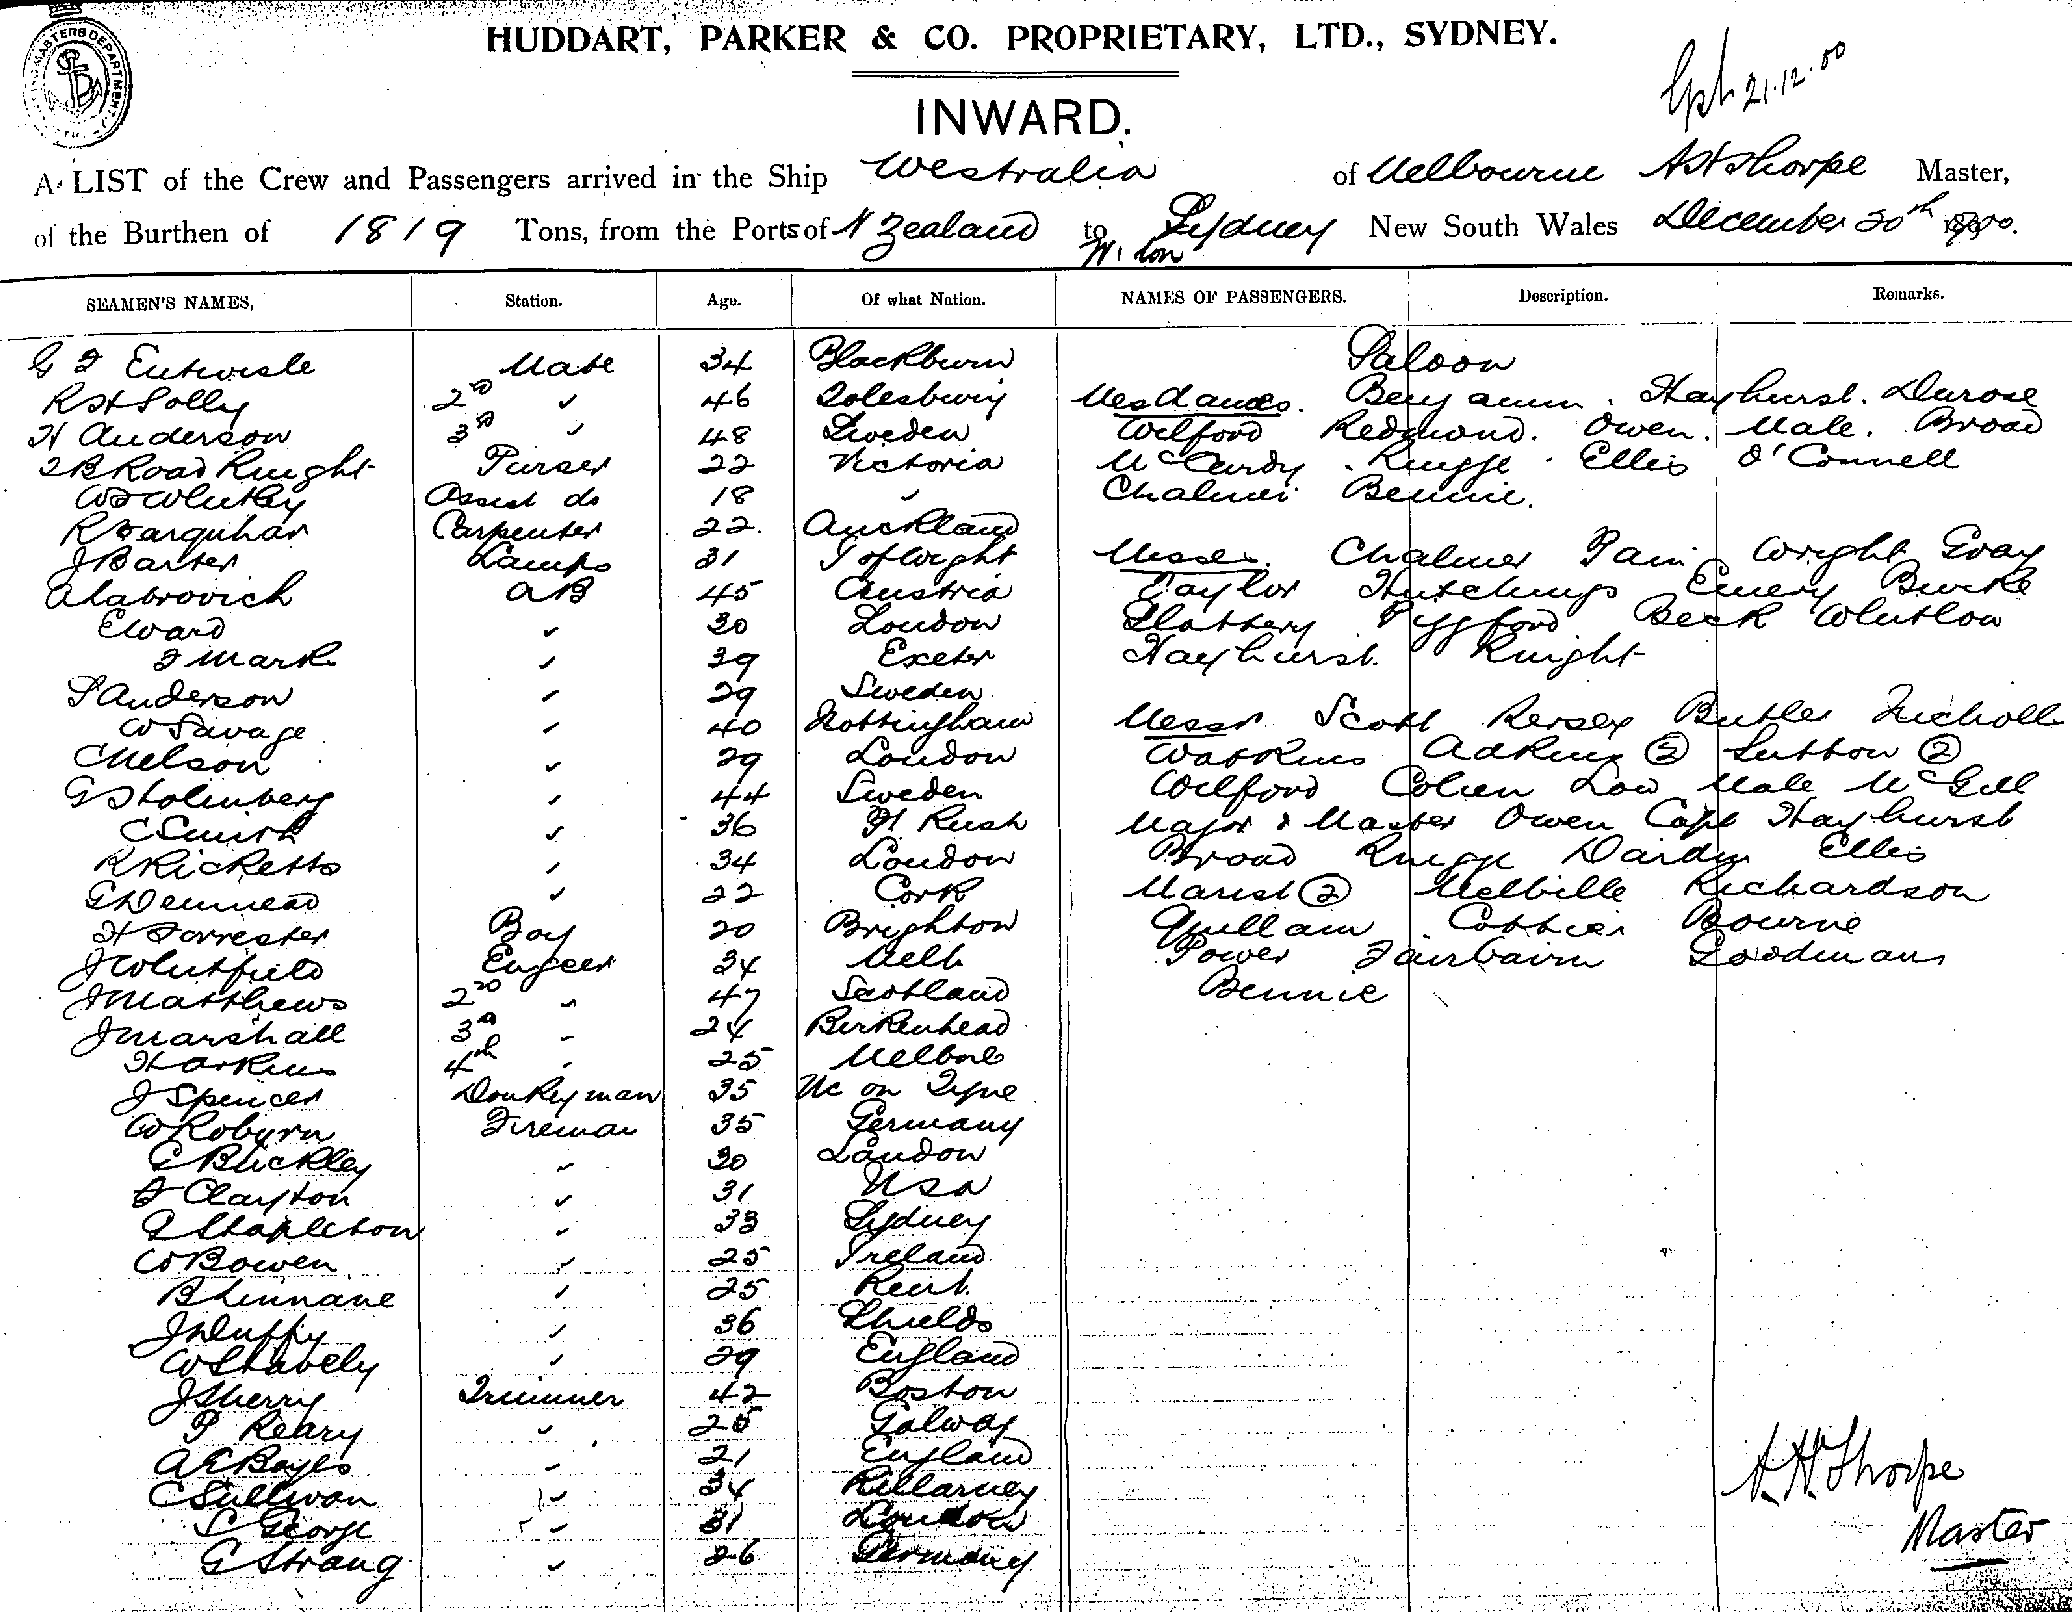 HUDDART, PARKER & CO. PROPRIETARY, LTD., SYDNEY.
INWARD.
21.12.00
A LIST of the Crew and Passengers arrived in the Ship Westralia of Melbourne A H Thorpe Master,
of the Burthen of 1819 Tons, from the Ports of N Zealand to Sydney New South Wales December 20th 1900.
W. ton
SEAMEN'S NAMES, Station. Age. Of what Nation. NAMES OF PASSENGERS. Description. Remarks.
G F Entwisle Mate 34 Blackburn Saloon
R H Solly 2nd ✓ 46 Mesdames. Benjamin. Hayhurst. Durose
H Anderson 3rd ✓ 48 Sweden Wilford Redmond. Owen. Male. Broad
Road Knight Purser 22 Victoria McCurdy. Knigge. Ellis O'Connell
W F Whitley Assist do 18 ✓ Chalmer Bennie.
R Farquhar Carpenter 22. Auckland
J Baxter Lamps 31 I of Wight Misses. Chalmer Pain Wright Gray
A Labrovich AB 45 Austria Taylor Hutchings Emery Burke
E Ward ✓ 30 London Slattery Piggford Beck Whitlow
F Mark ✓ 39 Exeter Hayhurst. Knight
S Anderson ✓ 29 Sweden
W Savage ✓ 40 Nottingham Messr Scott Kersey Butler Nicholl
C Nelson ✓ 29 London Watkins Adkins ② Sutton ②
G Holmberg ✓ 44 Sweden Wilford Cohen Low Male McGill
C Smith ✓ 36 Major & Master Owen Capt Hayhurst
R Ricketts ✓ 34 London Broad Knigge Dardy Ellis
G Denmead ✓ 22 Cork Marist ② Melbille Richardson
H Forrester Boy 20 Brighton Quillam Bourne
J Whitfield Engeer 34 Melb Power Fairbairn Goodman
J Matthews 2nd ✓ 47 Scotland Bennie
J Marshall 3rd ✓ 24 Birkenhead
Harkins 4th ✓ 25
J Spencer Donkeyman 35 Nc on Tyne
W Robyrn Fireman 35 Germany
G Buckley ✓ 30 London
F Clayton ✓ 31 USA
G Stapleton ✓ 33 Sydney
W Bowen ✓ 25 Ireland
B Linnane ✓ 25 Kent.
J Duffy ✓ 36 Shields
W Stabely ✓ 29 England
J Sherry Trimmer 42 Boston
P Keary ✓ 25 Galway
A E Bayes ✓ 21 England
C Sullivan ✓ 34 Killarney
S George ✓ 31 London
G Strang ✓ 26 Germany
A. H. Thorpe
Master